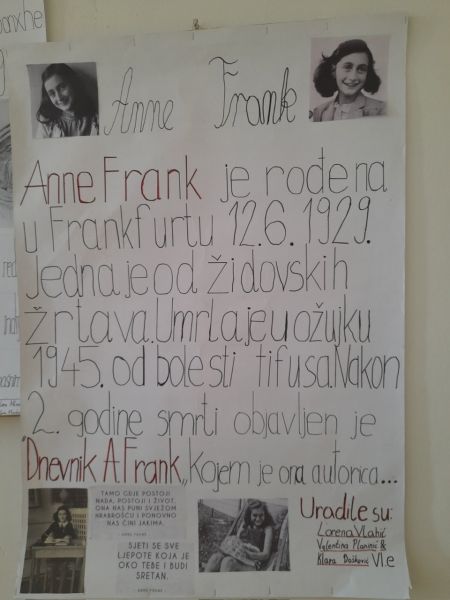 Anne Frank
Anne Frank je rođena
u Frankfurtu 12.6.1929.
Jedna je od židovskih
žrtava. Umrla je u ožujku
1945. od bolesti tifusa. Nakon
2. godine smrti objavljen je
"Dnevnik A Frank", kojem je ona autorica...
TAMO GDJE POSTOJI
NADA, POSTOJI I ŽIVOT.
ONA NAS PUNI SVJEŽOM
HRABROŠĆU I PONOVNO
NAS ČINI JAKIMA.
SJETI SE SVE
LJEPOTE KOJA JE
OKO TEBE I BUDI
SRETAN.
Uradile su:
Lorena Vlahić
Valentina Planinić &
Klara Dašković VI.e